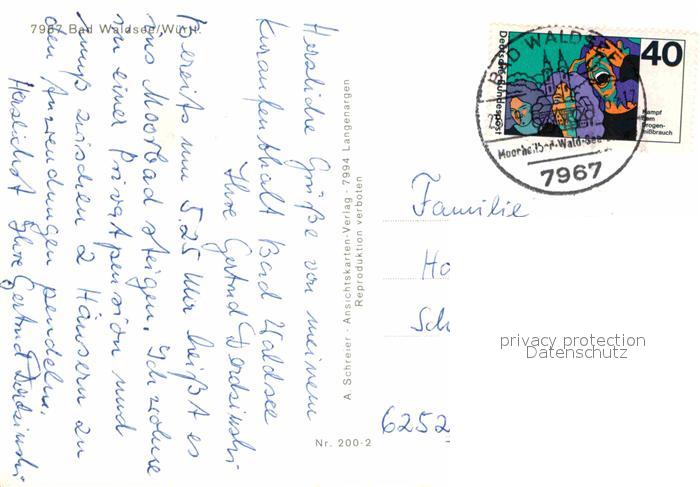 7967 Bad Waldsee/Württ.
Herzliche Grüße von meinem
Kuraufenthalt Bad Waldsee
Ihre Gertrud
Bereits um 5.25 Uhr heißt es
ins Moorbad steigen. Ich wohne
in einer Privatpension und
muß zwischen 2 Häusern zu
den Anwendungen pendeln.
Herzlichst Ihre Gertrud
A. Schreier - Ansichtskarten-Verlag - 7994 Langenargen
Reproduktion verboten
Nr. 200-2
Deutsche Bundespost
40
Kampf
dem
Drogen-
mißbrauch
BAD WALDSEE
Moorheilb.
7967
Familie
Ho
Sch
6252
privacy protection
Datenschutz